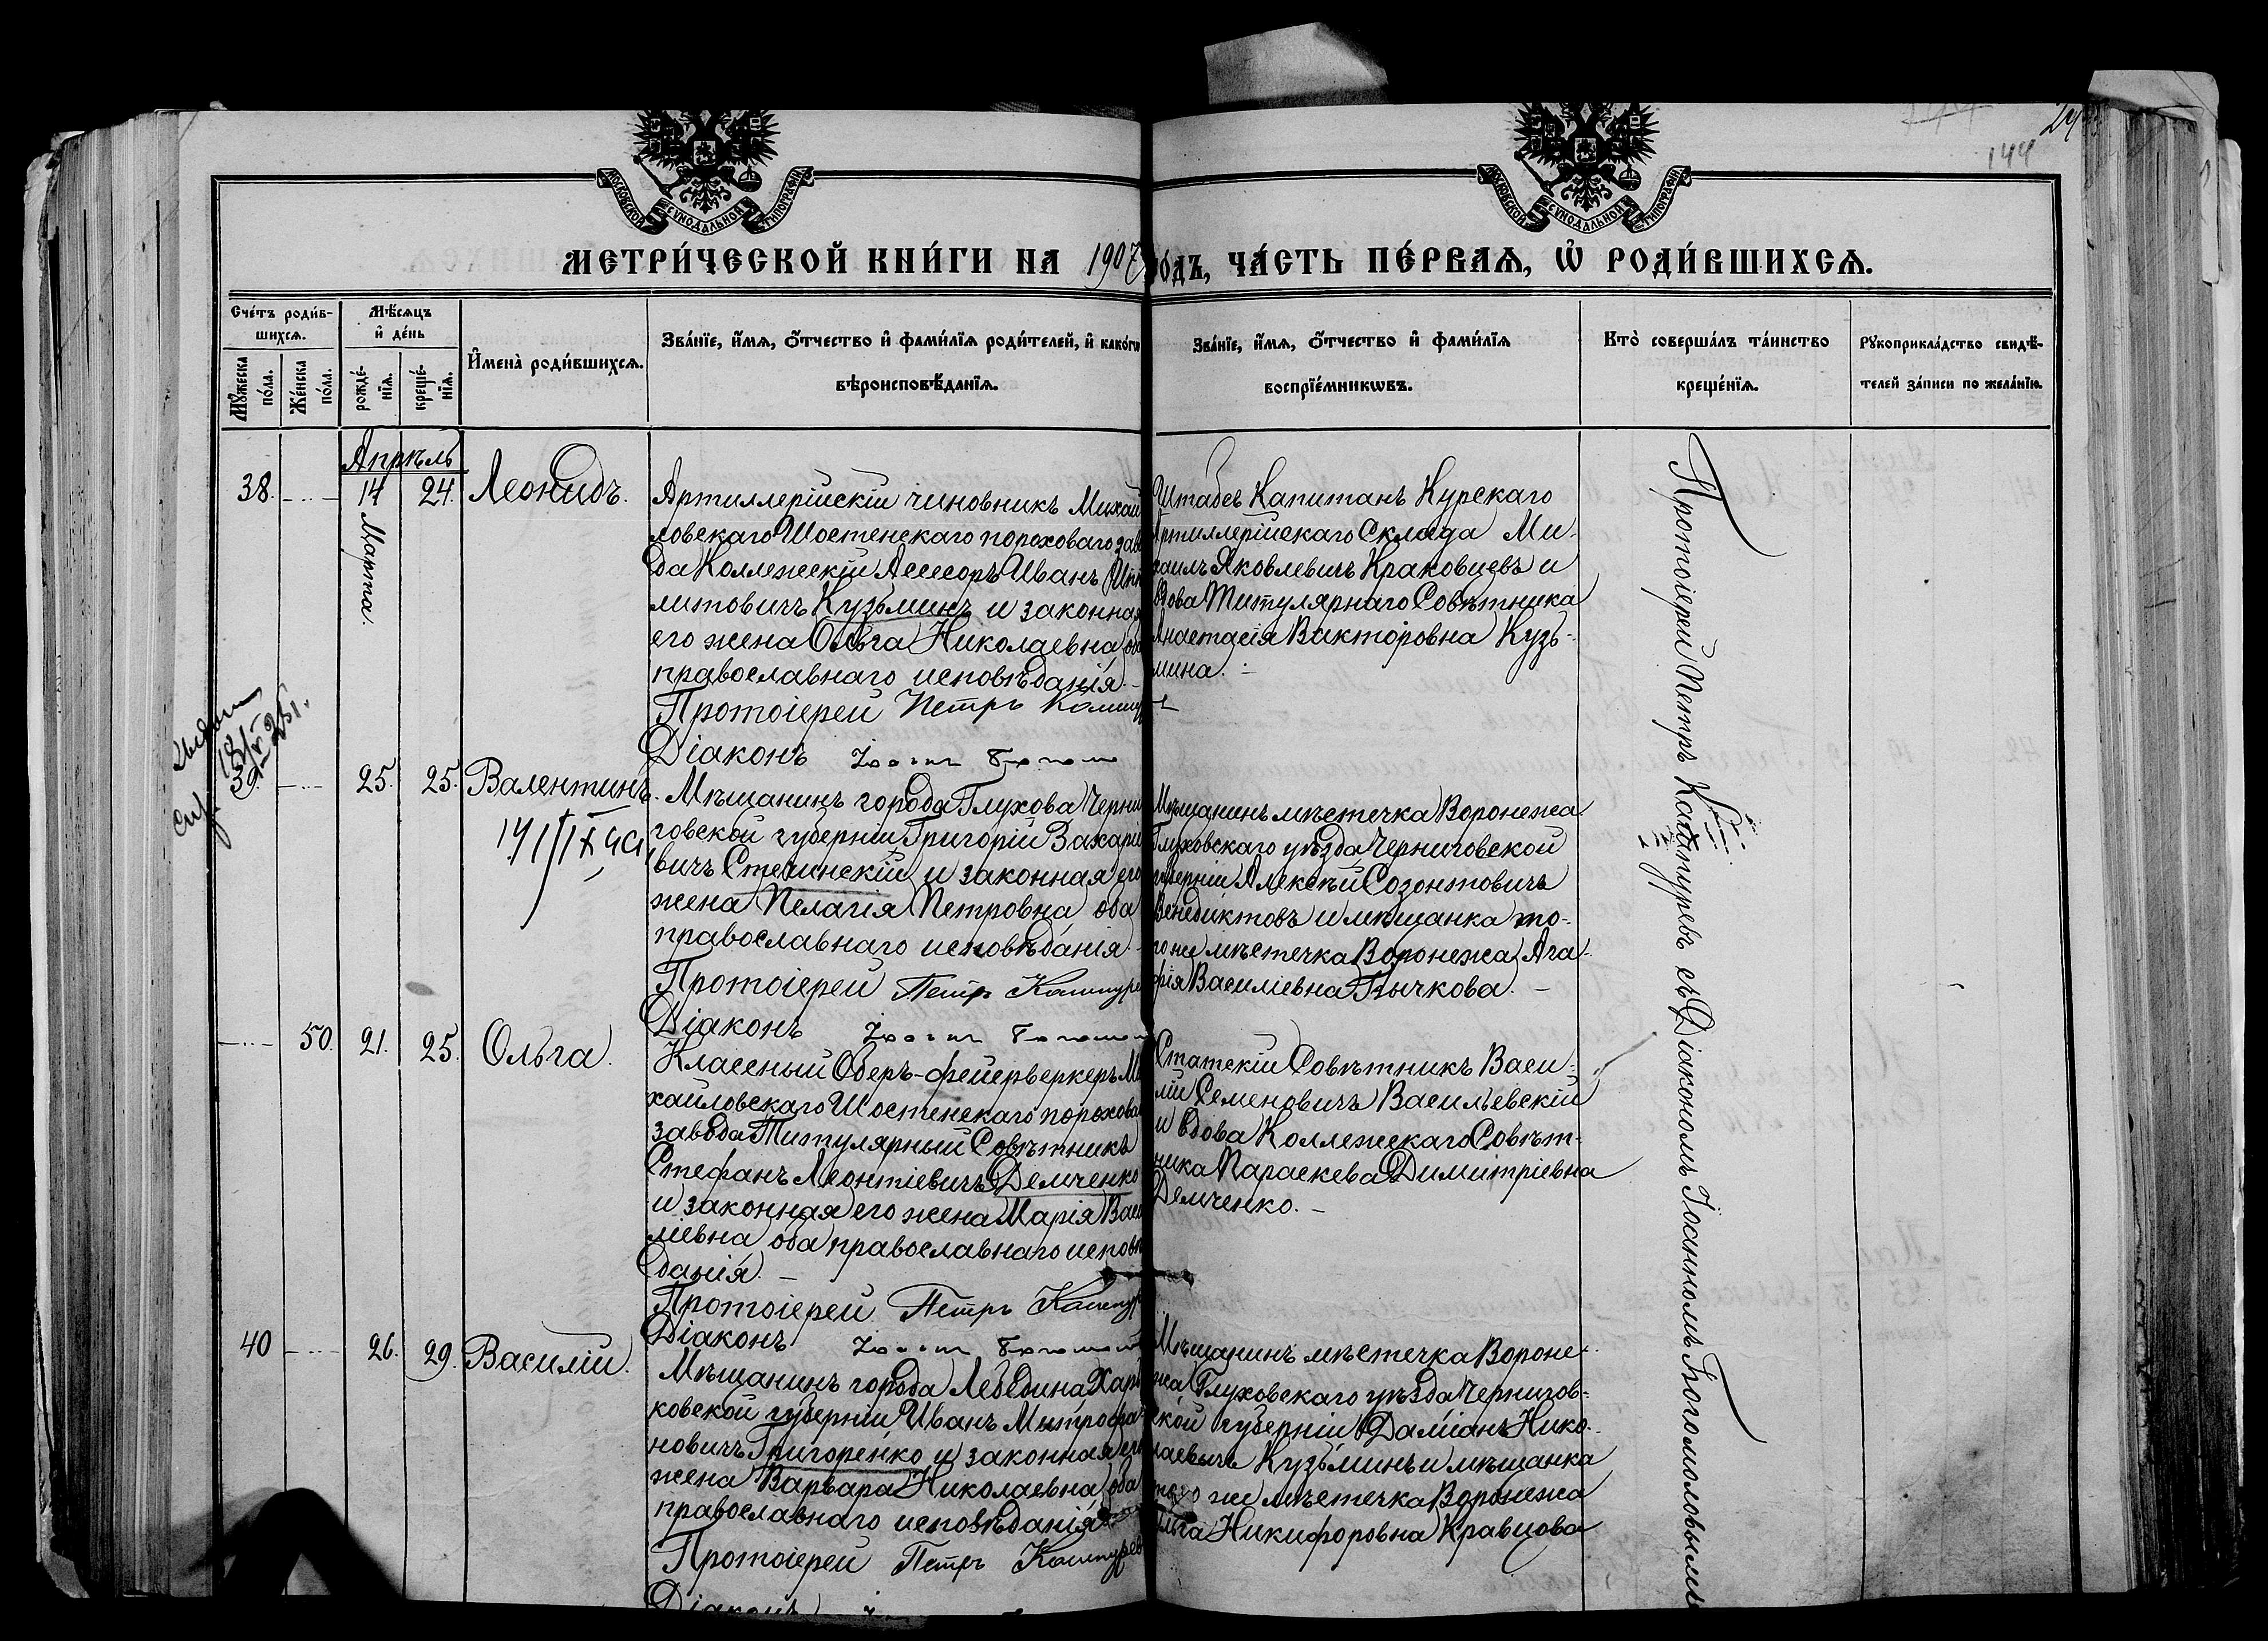 144
МОСКОВСКОЙ СУНОДАЛЬНОЙ ТИПОГРАФІИ
МОСКОВСКОЙ СУНОДАЛЬНОЙ ТИПОГРАФІИ
МЕТРИ́ЧЕСКОЙ КНИ́ГИ НА 1907 го́дъ, ЧА́СТЬ ПЕ́РВАѦ, Ѡ҆ РОДИ́ВШИХСѦ.
Сче́тъ роди́в-
шихсѧ.
Мꙋ́жеска по́ла.
Же́нска по́ла.
Мѣ́сѧцъ
и҆ де́нь
рожде́-
нїѧ.
креще́-
нїѧ.
И҆мена̀ роди́вшихсѧ.
Зва́нїе, и҆́мѧ, ѻ҆́тчество и҆ фами́лїѧ роди́телей, и҆ како́гѡ
вѣроисповѣ́данїѧ.
Зва́нїе, и҆́мѧ, ѻ҆́тчество и҆ фами́лїѧ
воспрїе́мникѡвъ.
Кто̀ соверша́лъ та́инство
креще́нїѧ.
Рꙋкоприкла́дство свидѣ́-
телей за́писи по жела́нїю.
Апрѣль
38.
14
Марта.
24.
Леонидъ.
Артиллерійскій чиновникъ Михай
ловскаго Шостенскаго пороховаго заво
да Коллежскій Ассесоръ Иванъ
литовичъ Кузьминъ и законная
его жена Ольга Николаевна оба
православнаго исповѣданія.-
Протоіерей Петръ
Діаконъ
Штабсъ Капитанъ Курскаго
Артиллерійскаго Склада Ми-
хаилъ Яковлевичъ Краковцевъ и
вдова Титулярнаго Совѣтника
Анастасія Викторовна Кузь-
мина.
39.
25.
25.
Валентинъ.
Мѣщанинъ города Глухова Черни
говской губерніи Григорій Захаріе
вичъ Стешинскій и законная его
жена Пелагія Петровна оба
православнаго исповѣданія.-
Протоіерей Петръ
Діаконъ
Мѣщанинъ мѣстечка Воронежа
Глуховскаго уѣзда Черниговской
губерніи Алексѣй Созонтовичъ
Венедиктовъ и мѣщанка то-
го же мѣстечка Воронежа Ага-
фія Василіевна Бычкова. -
50.
21.
25.
Ольга.
Классный Оберъ-фейерверкеръ Ми
хайловскаго Шостенскаго порохова
завода Титулярный Совѣтникъ
Стефанъ Леонтіевичъ Демченко
и законная его жена Марія Васи
ліевна оба православнаго исповѣ
данія. -
Протоіерей Петръ
Діаконъ
Статскій Совѣтникъ Васи-
лій Семеновичъ Васильевскій
и вдова Коллежскаго Совѣт-
ника Параскева Димитріевна
Демченко. -
40
26.
29.
Василій.
Мѣщанинъ города Лебедина Харь
ковской губерніи Иванъ Митрофа
новичъ Григоренко и законная его
жена Варвара Николаевна оба
православнаго исповѣданія
Протоіерей Петръ
Діаконъ
Мѣщанинъ мѣстечка Вороне-
жа Глуховскаго уѣзда Чернигов-
ской губерніи Даміанъ Нико-
лаевичъ Кузьминъ и мѣщанка
того же мѣстечка Воронежа
Ольга Никифоровна Кравцова
Протоіерей Петръ съ Діакономъ Іоанномъ Богомоловымъ